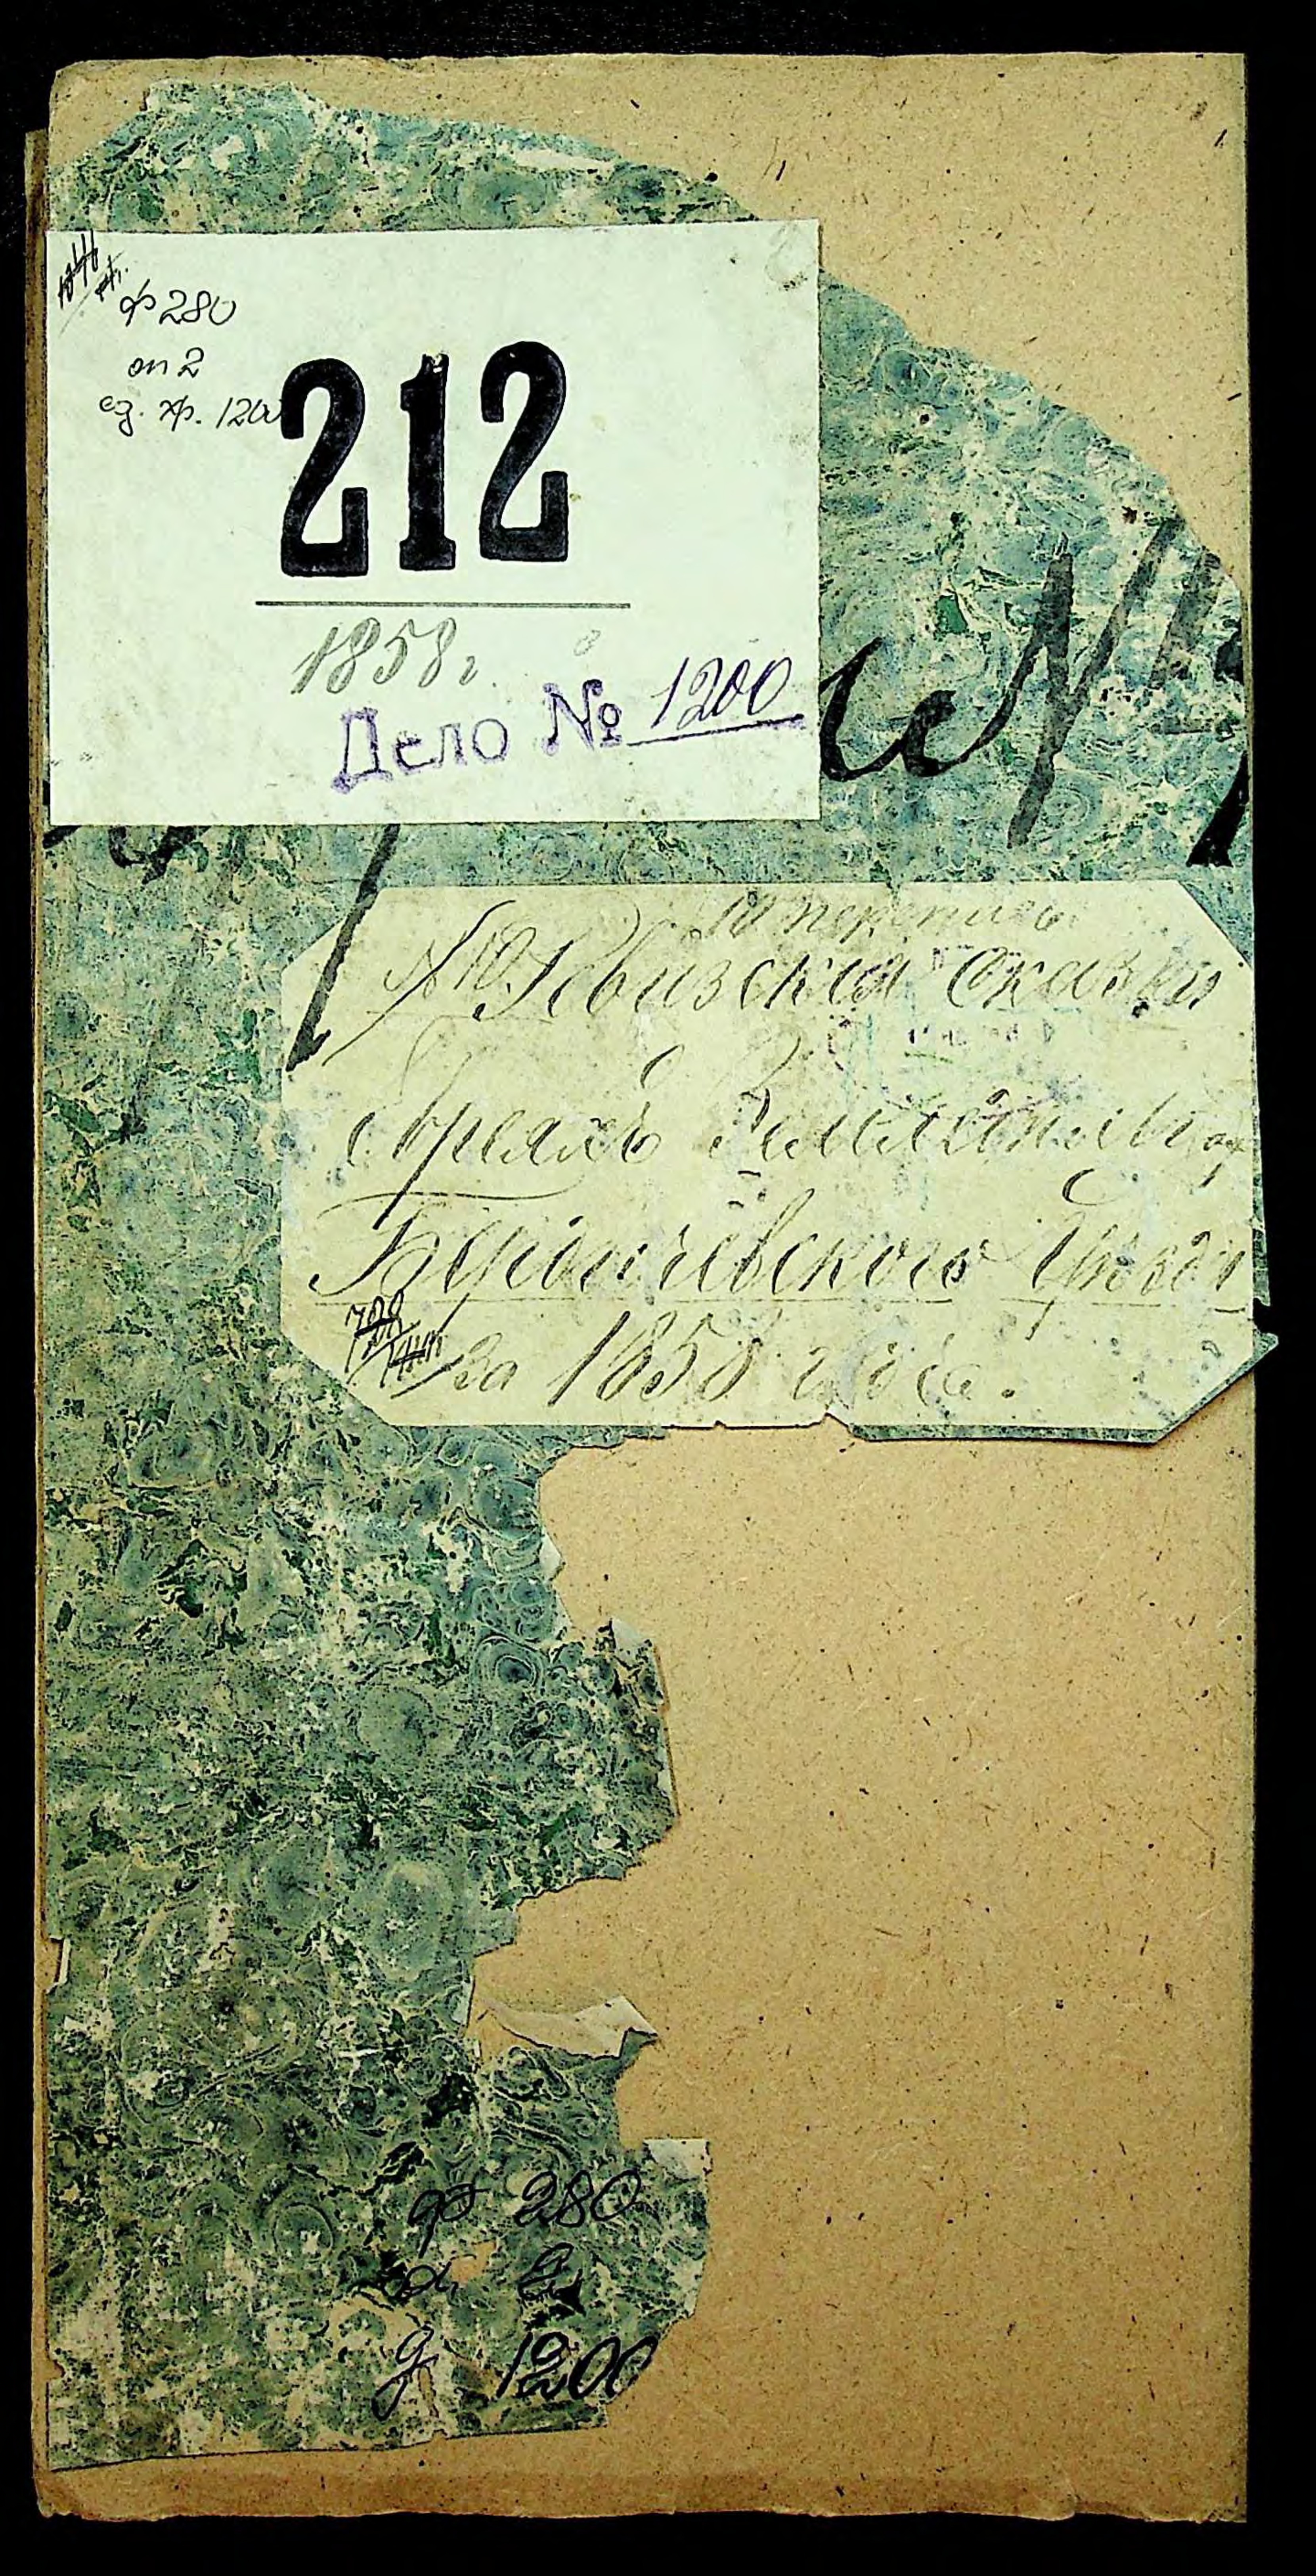 ф 280
оп 2
ед. хр. 1200
212
1858г.
Дело № 1200
10 перепись
№ 10. Ревизская Сказка
Евреямъ
Бердичевского Уезда
за 1858 года.
ф 280
оп 2
д 1200